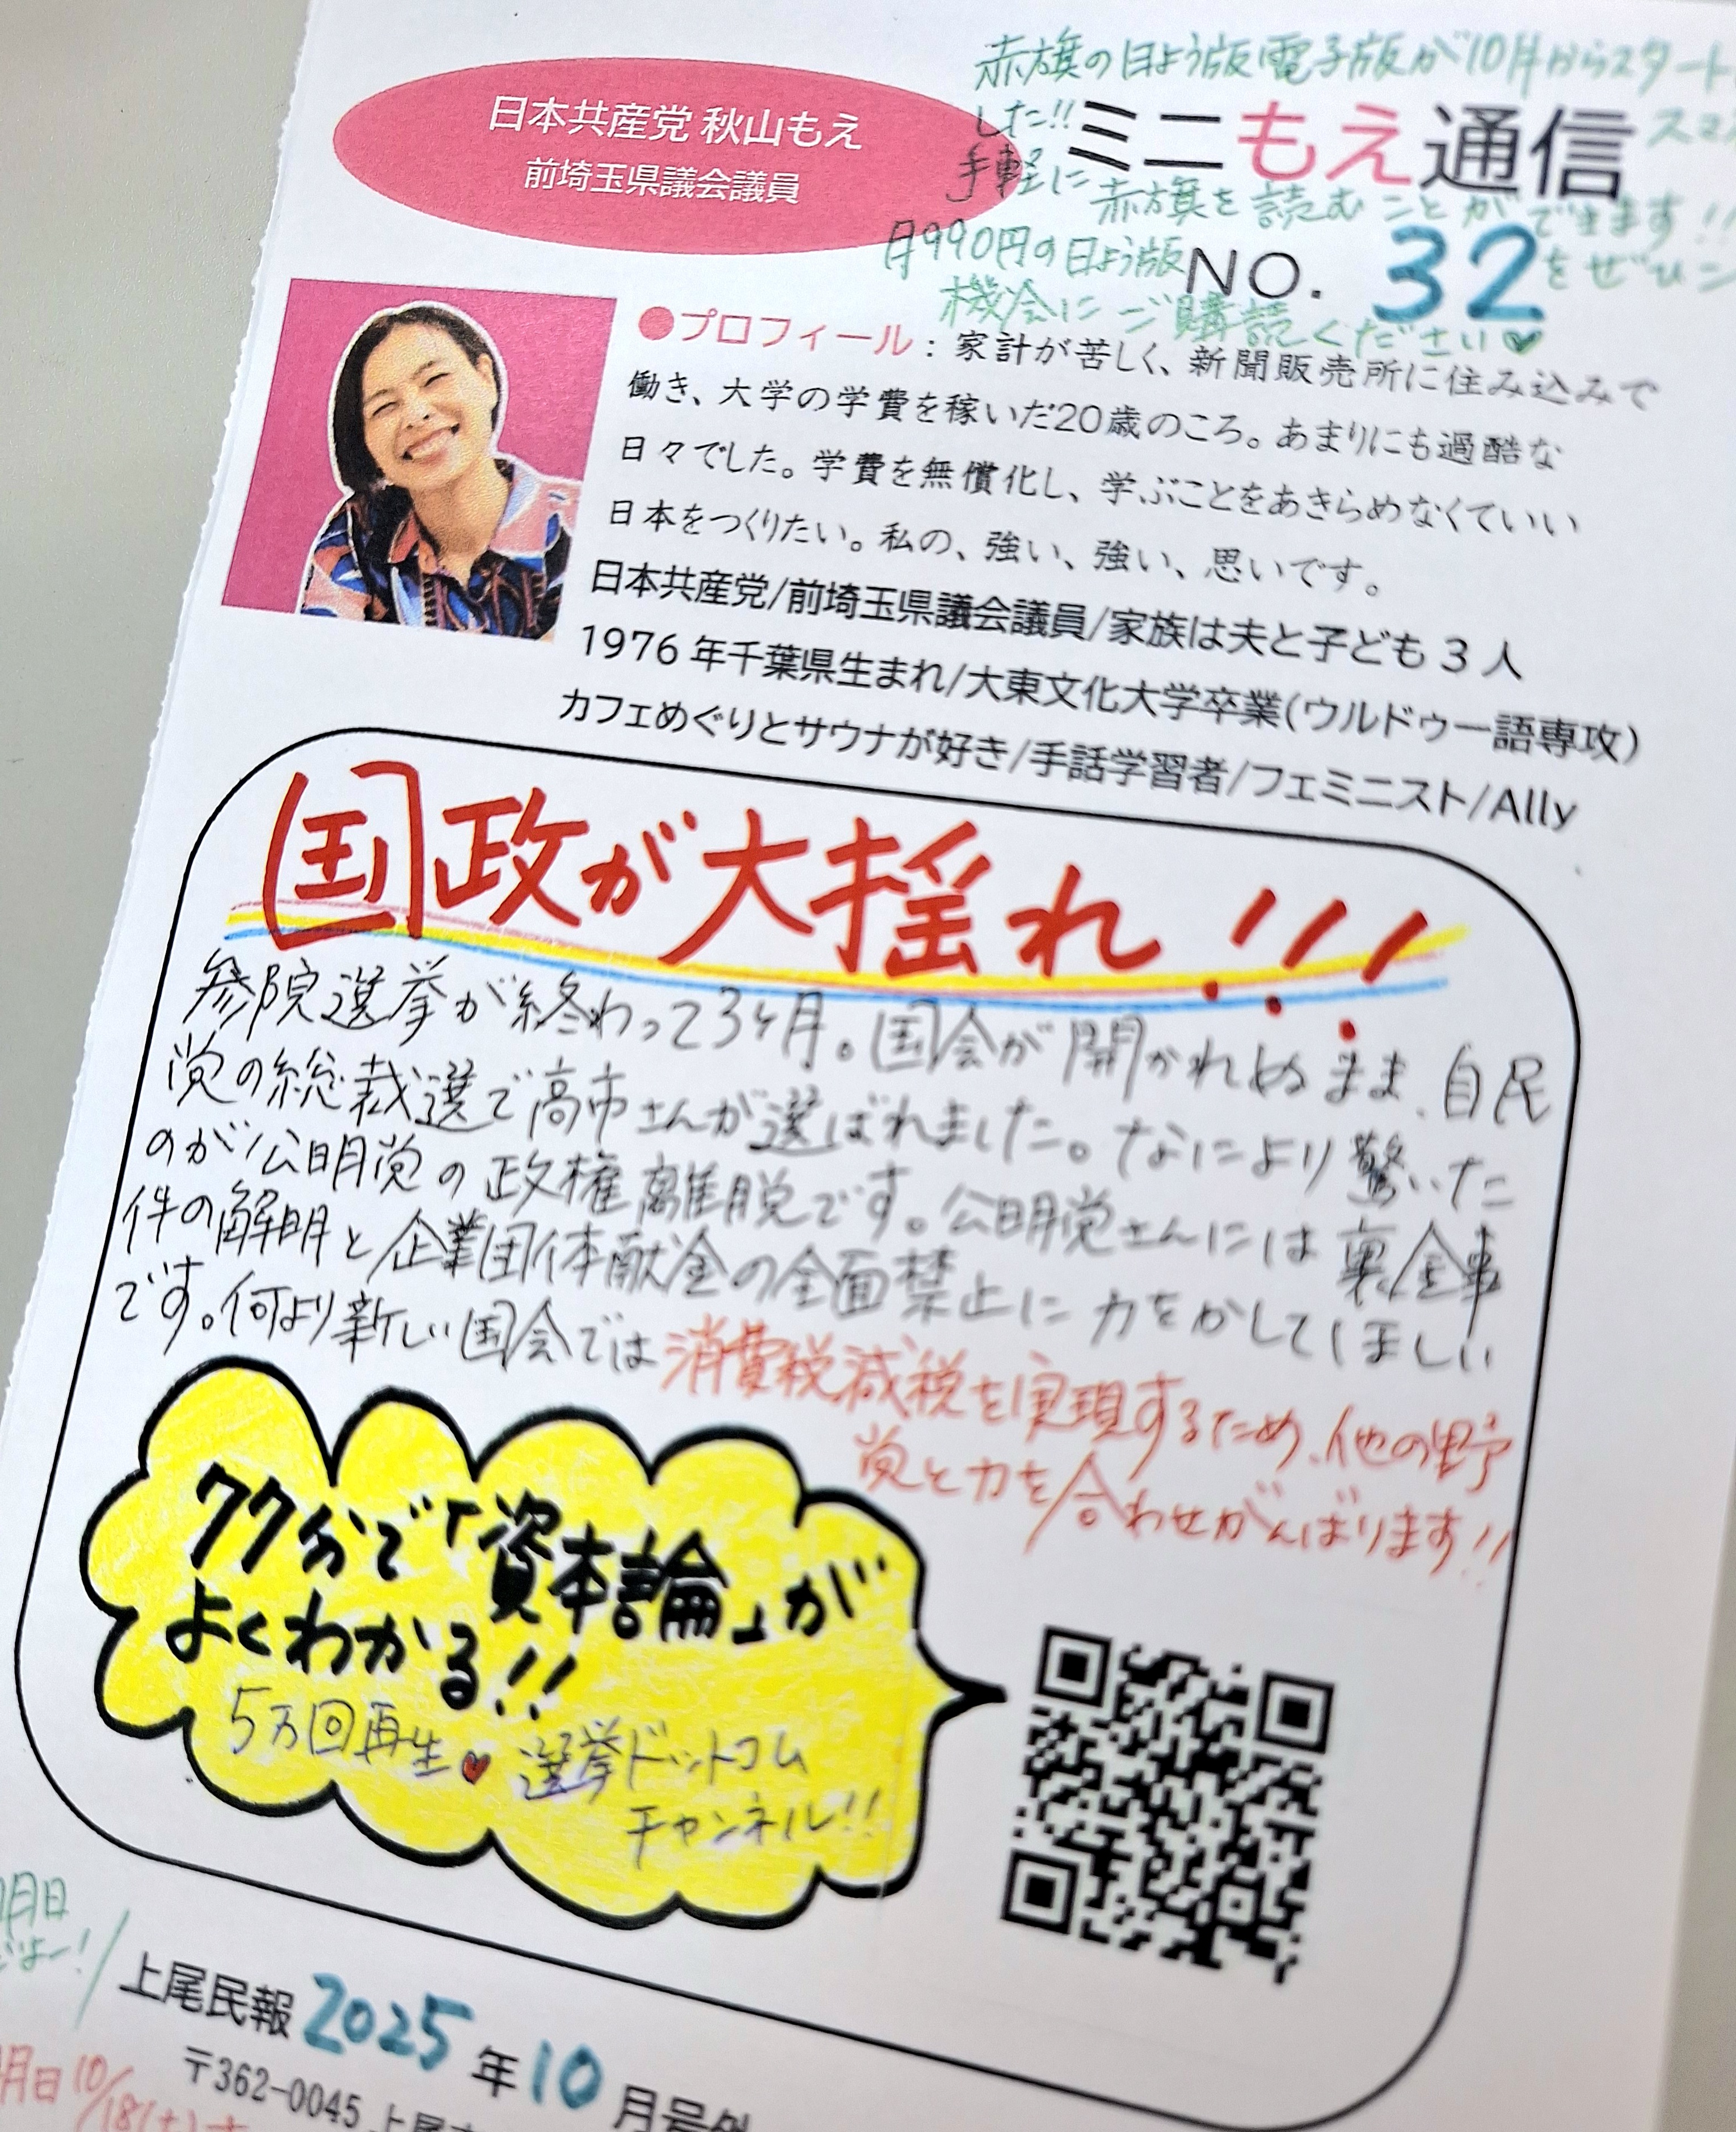 赤旗の日よう版電子版が10月からスタート
した!!
手軽に赤旗を読むことができます!!
月990円の日よう版をぜひ
機会にご購読ください♥
日本共産党 秋山もえ
前埼玉県議会議員
ミニもえ通信
NO. 32
●プロフィール：家計が苦しく、新聞販売所に住み込みで
働き、大学の学費を稼いだ20歳のころ。あまりにも過酷な
日々でした。学費を無償化し、学ぶことをあきらめなくていい
日本をつくりたい。私の、強い、強い、思いです。
日本共産党/前埼玉県議会議員/家族は夫と子ども 3 人
1976 年千葉県生まれ/大東文化大学卒業(ウルドゥー語専攻)
カフェめぐりとサウナが好き/手話学習者/フェミニスト/Ally
国政が大揺れ!!!
参院選挙が終わって3ヶ月。国会が開かれぬまま、自民
党の総裁選で高市さんが選ばれました。なにより驚いた
のが公明党の政権離脱です。公明党さんには裏金事
件の解明と企業団体献金の全面禁止に力をかしてほしい
です。何より新しい国会では消費税減税を実現するため、他の野
党と力を合わせがんばります!!
77分で「資本論」が
よくわかる!!
5万回再生♥選挙ドットコム
チャンネル!!
上尾民報 2025 年 10 月号外
〒362-0045 上尾
10/18(土)